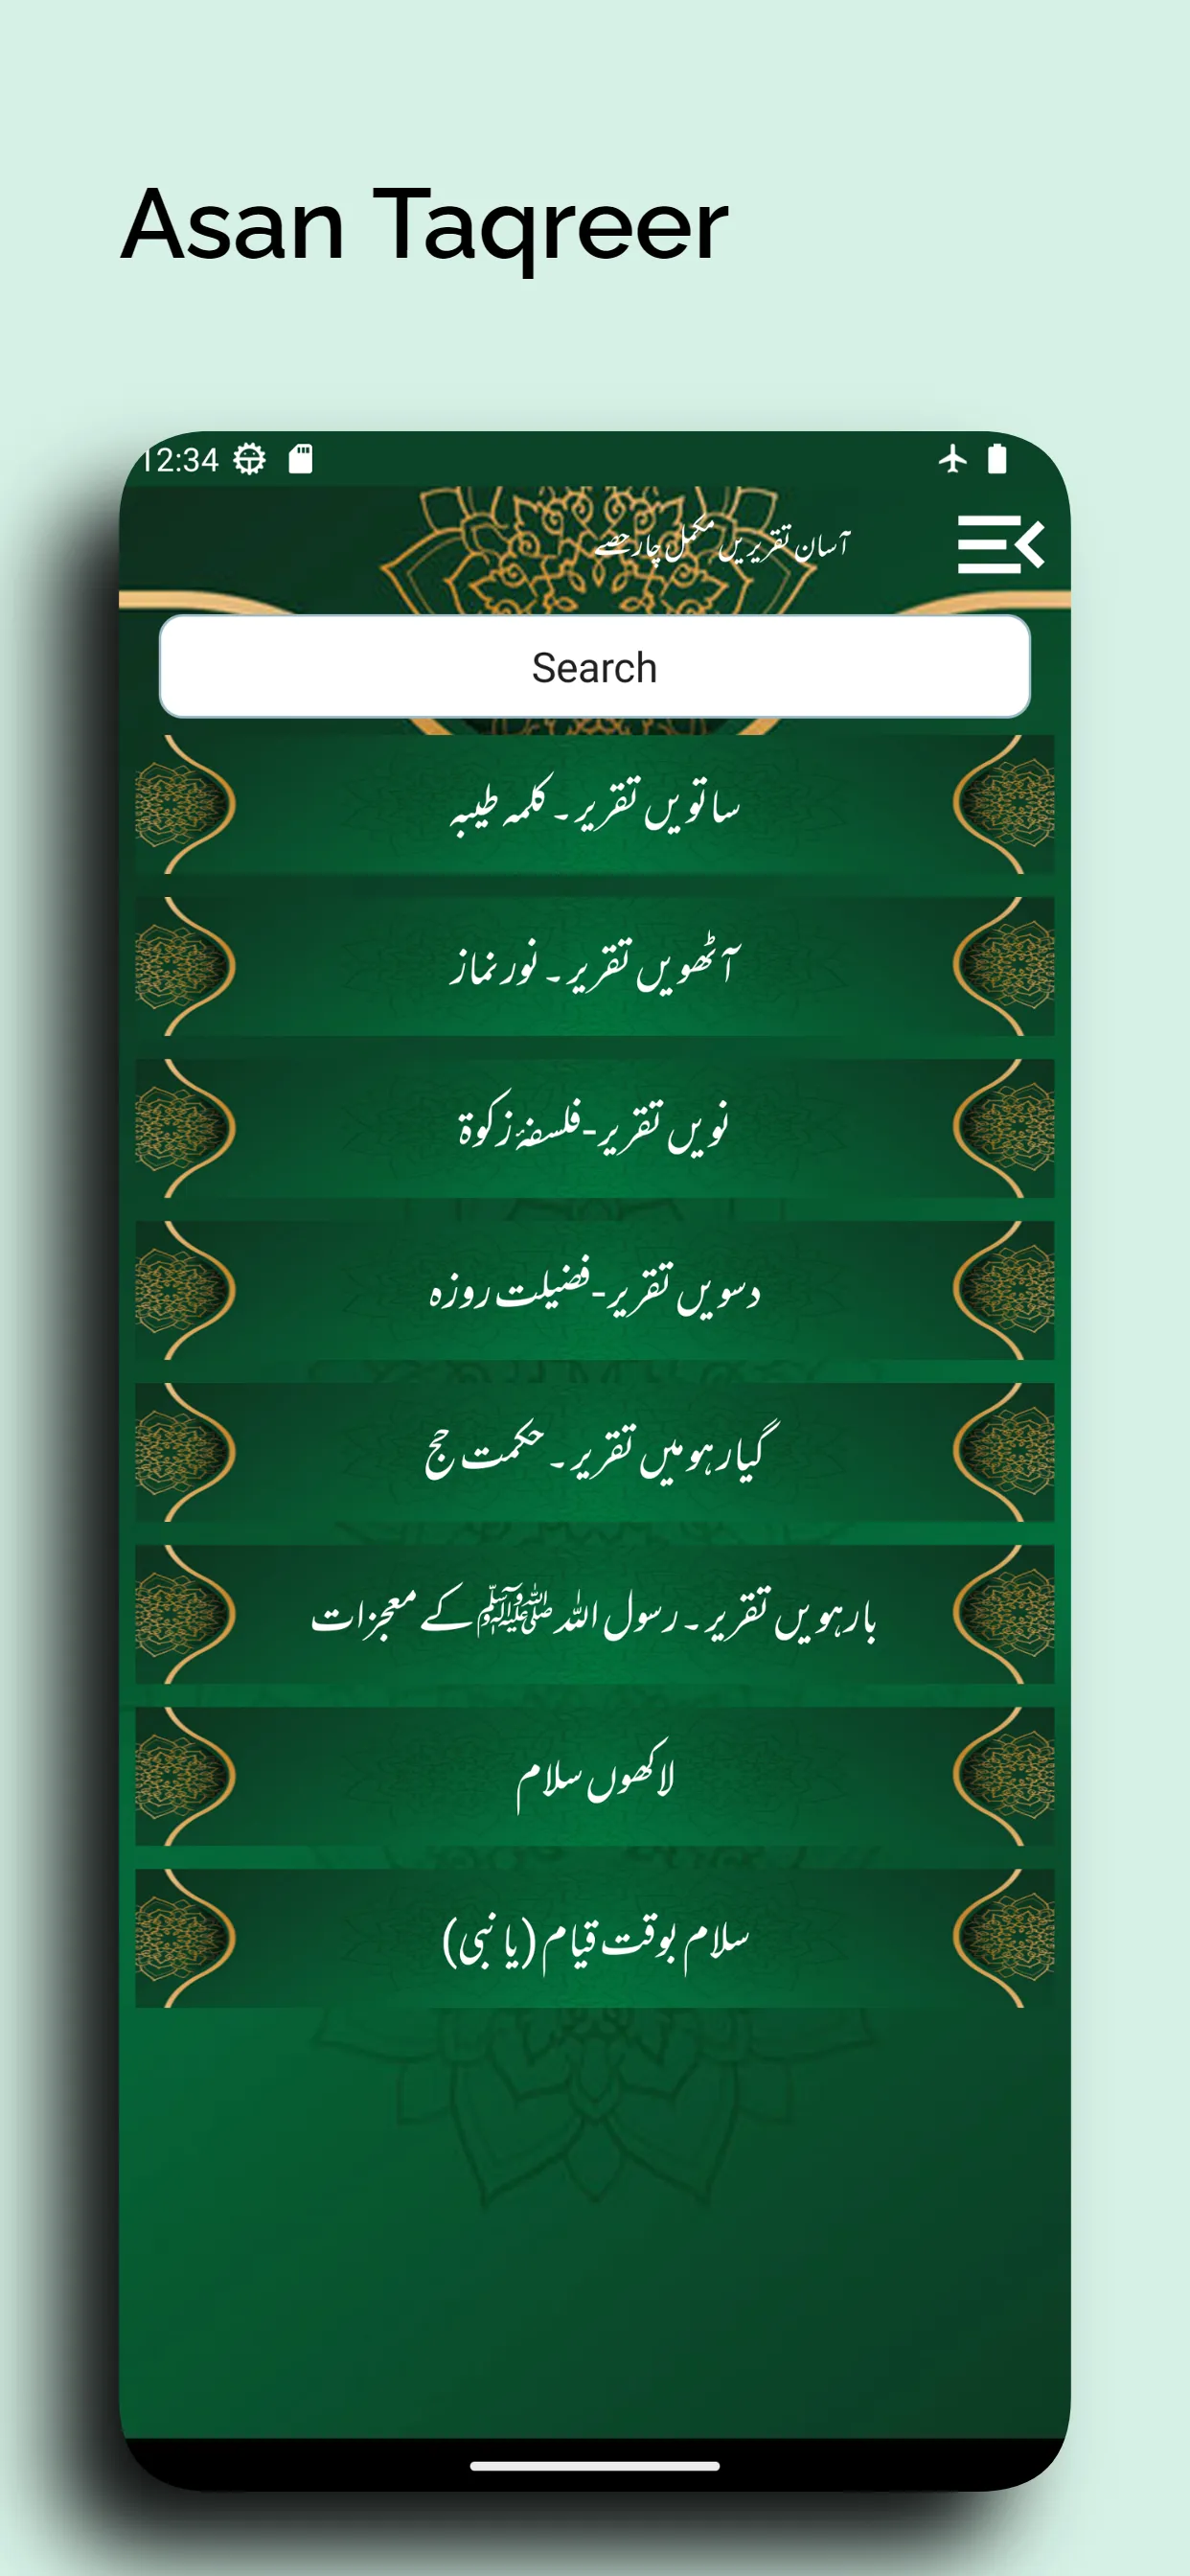 Asan Taqreer
12:34
آسان تقریریں مکمل چار حصے
Search
ساتویں تقریر۔ کلمہ طیبہ
آٹھویں تقریر۔ نور نماز
نویں تقریر-فلسفۂ زکوۃ
دسویں تقریر-فضیلت روزہ
گیارہومیں تقریر۔ حکمت حج
بارہویں تقریر۔ رسول اللہ ﷺ کے معجزات
لاکھوں سلام
سلام بوقت قیام (یا نبی)